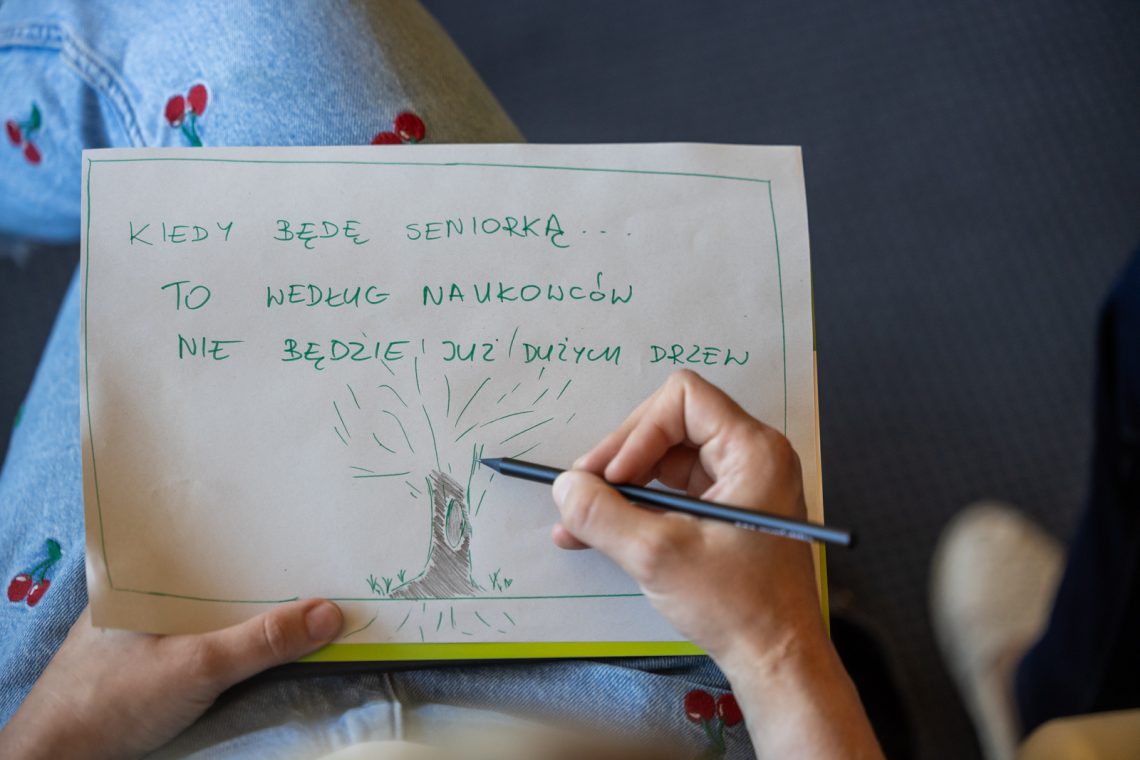 KIEDY BĘDĘ SENIORKĄ...
TO WEDŁUG NAUKOWCÓW
NIE BĘDZIE JUŻ DUŻYCH DRZEW